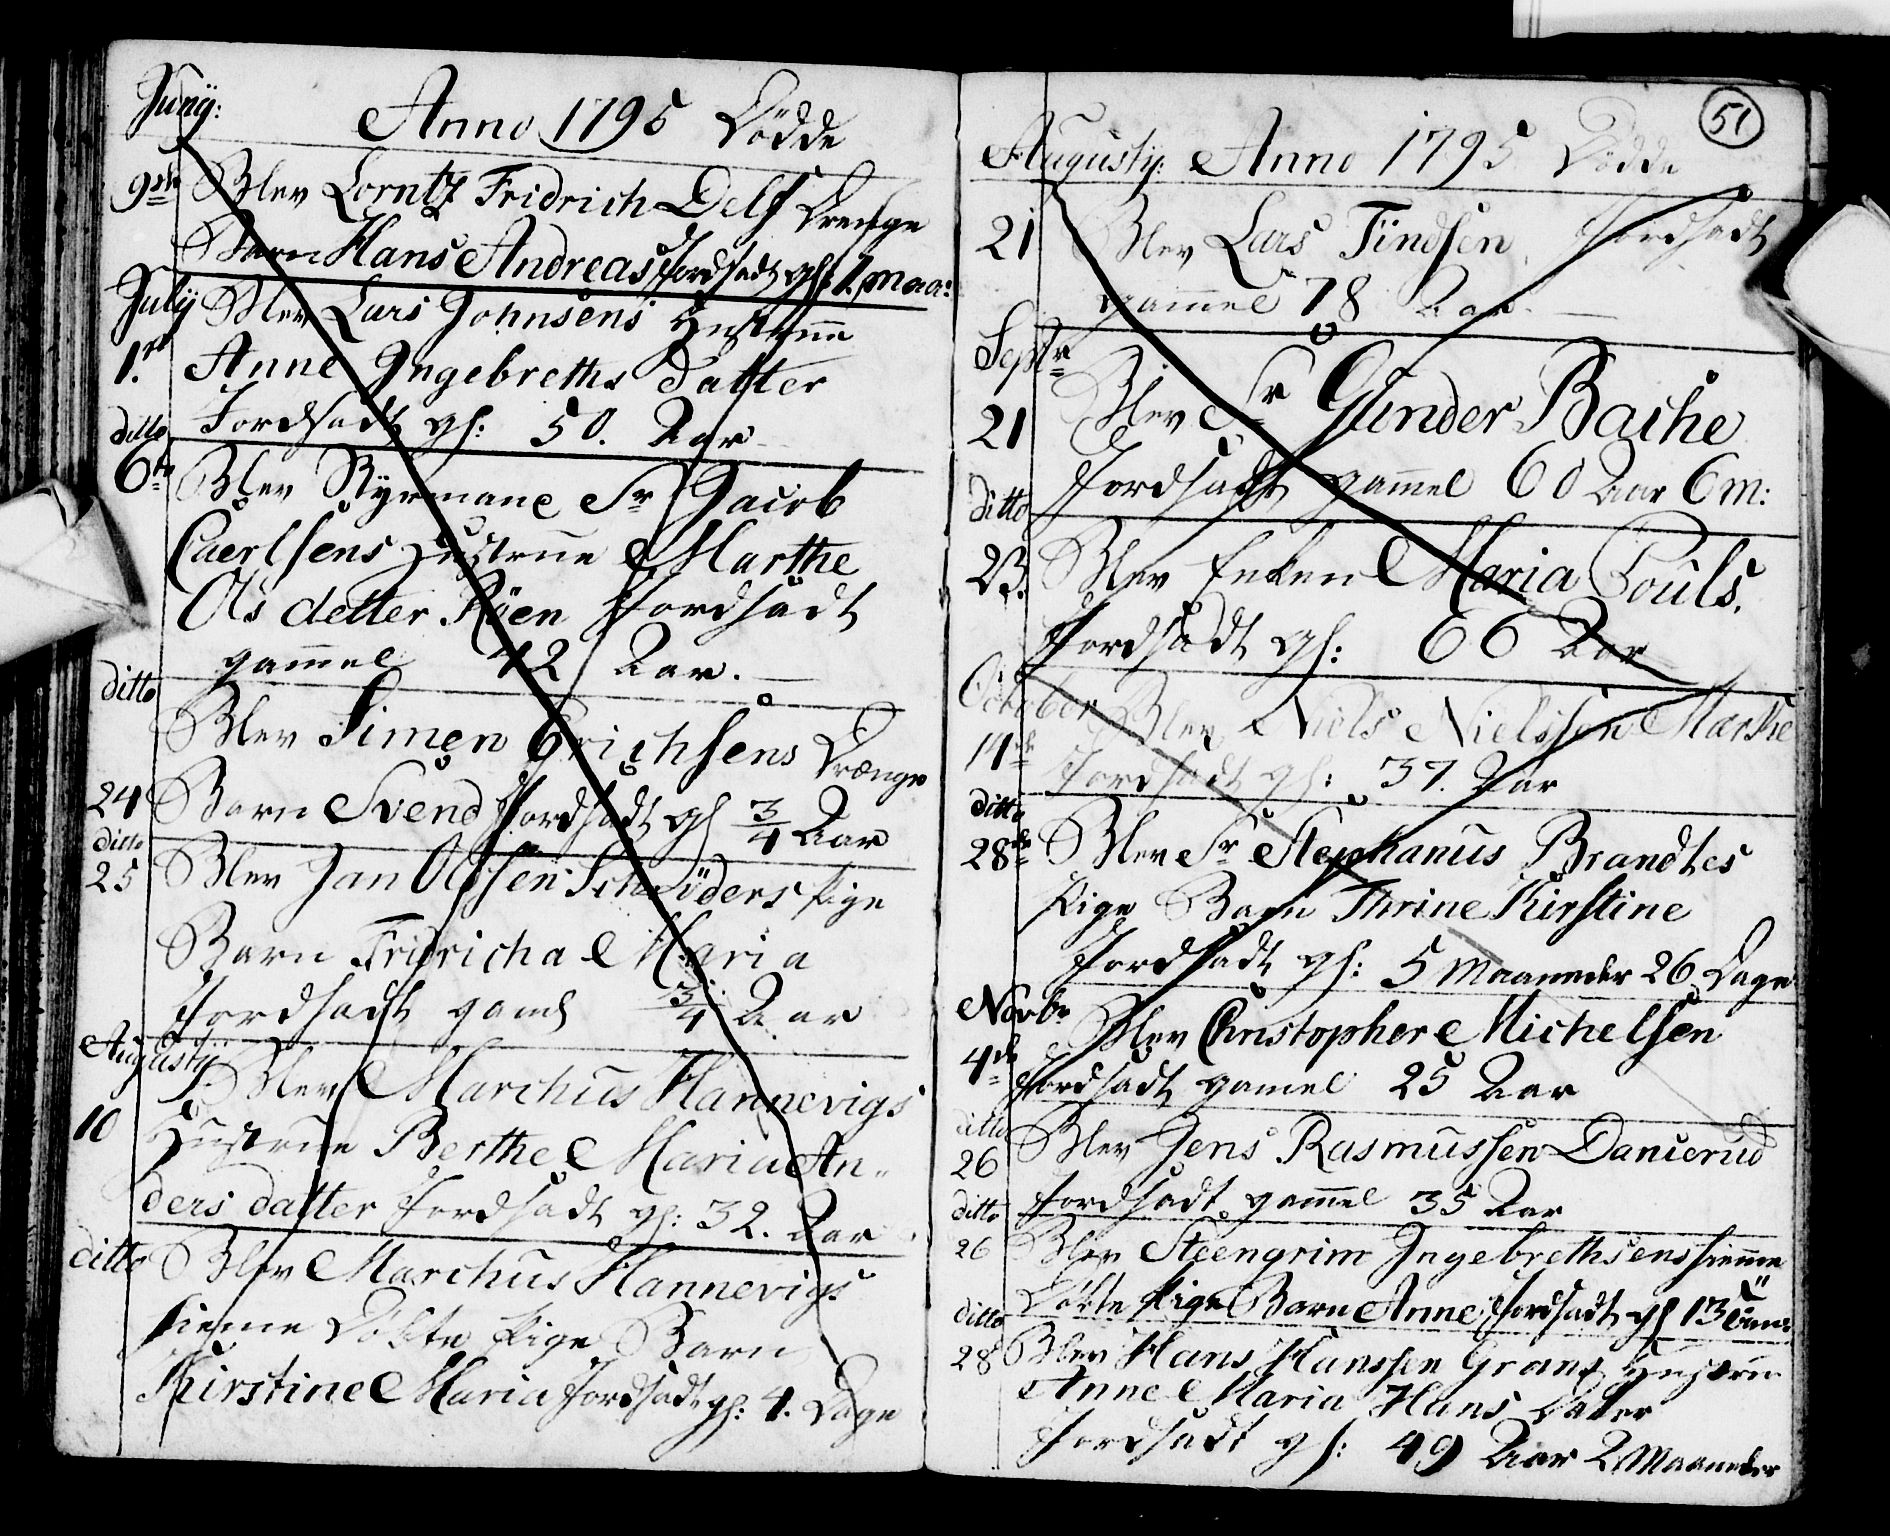 Junÿ:
Anno 1795 Dödde
9de Blev Lorntz Fridrich Delfs Drenge
Barn Hans Andreas Jordsadt gl: 1. maa:
July Blev Lars Johnsens Hustrue
1. st Anne Ingebreths datter
Jordsadt gl: 50. Aar
ditto
6te Blev Styrmand Sr Jacob
Caerlsens Hustrue Marthe
Ols datter Röen Jordsadt
gammel 42 Aar.
ditto
Blev Simen Erichsens Drænge
24 Barn Svend Jordsadt gl 3/4 Aar
ditto
25 Blev Jan Olssen Schrøders Pige
Barn Fridricha Maria
Jordsadt gaml 3/4 Aar
Augusty
Blev Marchus Hannevigs
10 Hustrue Berthe Maria An-
ders datter Jordsadt gl: 32. Aar
ditto Blev Marchus Hannevigs
hieme Döbte Pige Barn
Kirstine Maria Jordsadt gl: 4. Dage
51
Augusty: Anno 1795 Dödde
21 Blev Lars Findsen Jordsadt
gammel 78 Aar.
Septr
21 Blev Sr Gunder Bache
Jordsadt gammel 60 Aar 6 m:
ditto
23. Blev Enken Maria Pouls.
Jordsadt gl: 66 Aar
October Blev Niels Nielssen Marke
14de Jordsadt gl: 37. Aar
ditto
28de Blev Sr Stephanus Brandtes
Pige Barn Thrine Kirstine
Jordsadt gl: 5 Maaneder 26 Dage
Novbr Blev Christopher Michelsen
4de Jordsadt gamel 25 Aar
ditto
26 Blev Jens Rasmussen Danserud
Jordsadt gammel 35 Aar
ditto
26 Blev Steengrim Ingebrethsens hiemme
Döbte Pige Barn Anne Jordsadt gl 13
ditto
28 Blev Hans Hanssen Grans Hustrue
Anne Maria Hans Datter
Jordsadt gl: 49 Aar 2 Maaneder